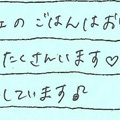 ェのごはんはお
たくさんいます♡
しています♪